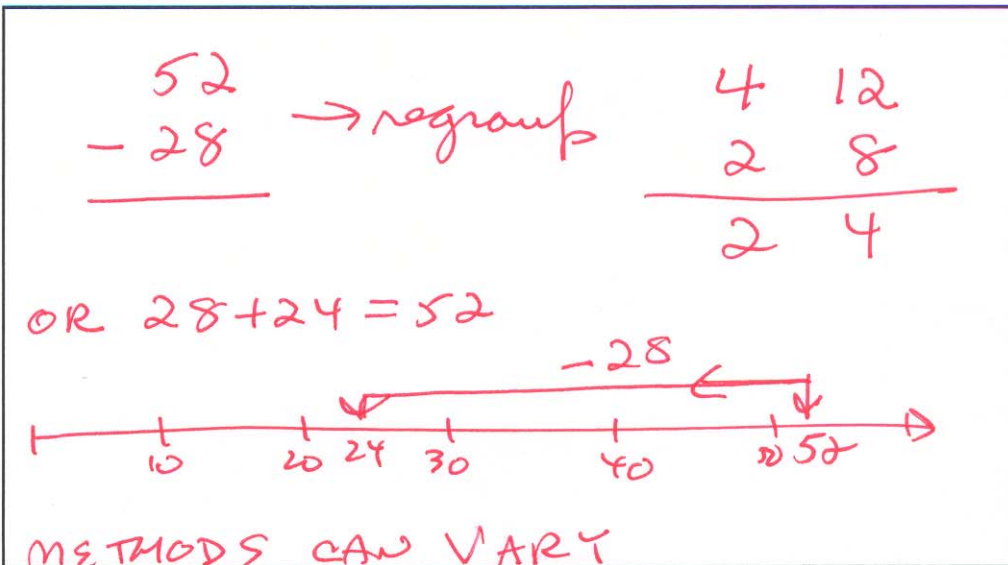 52
- 28
→ regroup
4 12
2 8
2 4
OR 28+24=52
-28
10 20 24 30 40 50 52
METHODS CAN VARY